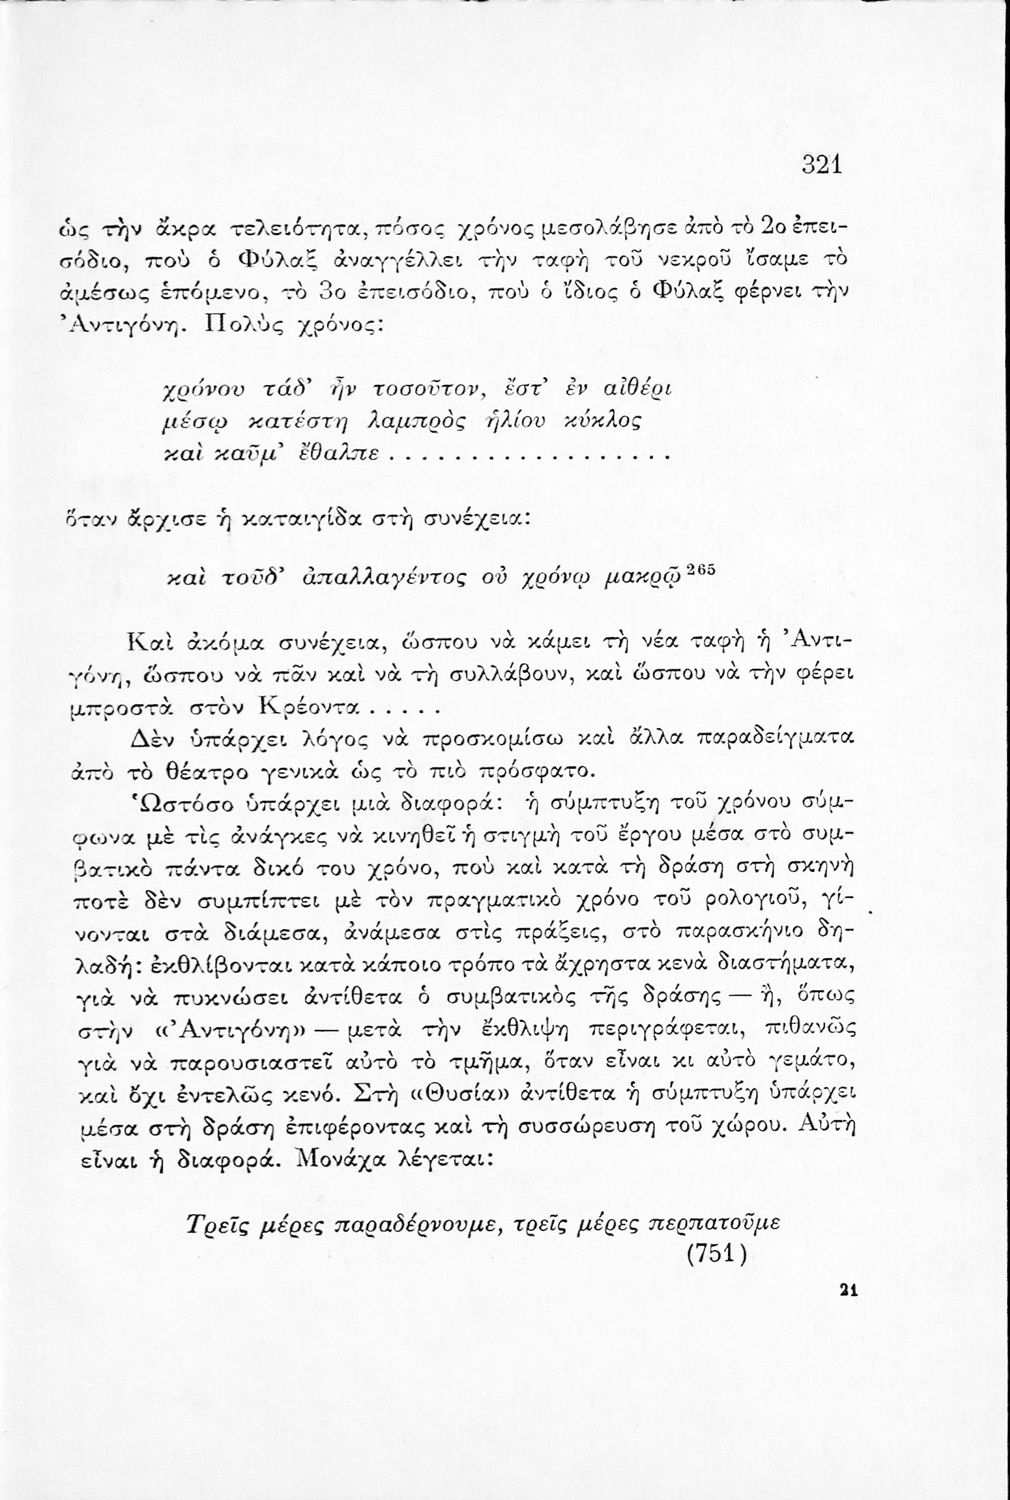 321
ὡς τὴν ἄκρα τελειότητα, πόσος χρόνος μεσολάβησε ἀπὸ τὸ 2ο ἐπει-
σόδιο, ποὺ ὁ Φύλαξ ἀναγγέλλει τὴν ταφὴ τοῦ νεκροῦ ἴσαμε τὸ
ἀμέσως ἑπόμενο, τὸ 3ο ἐπεισόδιο, ποὺ ὁ ἴδιος ὁ Φύλαξ φέρνει τὴν
Ἀντιγόνη. Πολὺς χρόνος:
χρόνου τάδ’ ἦν τοσοῦτον, ἔστ’ ἐν αἰθέρι
μέσῳ κατέστη λαμπρὸς ἡλίου κύκλος
καὶ καῦμ’ ἔθαλπε . . . . . . . . . . . . . . . . . .
ὅταν ἄρχισε ἡ καταιγίδα στὴ συνέχεια:
καὶ τοῦδ’ ἀπαλλαγέντος οὐ χρόνῳ μακρῷ²⁶⁵
Καὶ ἀκόμα συνέχεια, ὥσπου νὰ κάμει τὴ νέα ταφὴ ἡ Ἀντι-
γόνη, ὥσπου νὰ πᾶν καὶ νὰ τὴ συλλάβουν, καὶ ὥσπου νὰ τὴν φέρει
μπροστὰ στὸν Κρέοντα . . . . .
Δὲν ὑπάρχει λόγος νὰ προσκομίσω καὶ ἄλλα παραδείγματα
ἀπὸ τὸ θέατρο γενικὰ ὡς τὸ πιὸ πρόσφατο.
Ὡστόσο ὑπάρχει μιὰ διαφορά: ἡ σύμπτυξη τοῦ χρόνου σύμ-
φωνα μὲ τὶς ἀνάγκες νὰ κινηθεῖ ἡ στιγμὴ τοῦ ἔργου μέσα στὸ συμ-
βατικὸ πάντα δικό του χρόνο, ποὺ καὶ κατὰ τὴ δράση στὴ σκηνὴ
ποτὲ δὲν συμπίπτει μὲ τὸν πραγματικὸ χρόνο τοῦ ρολογιοῦ, γί-
νονται στὰ διάμεσα, ἀνάμεσα στὶς πράξεις, στὸ παρασκήνιο δη-
λαδή: ἐκθλίβονται κατὰ κάποιο τρόπο τὰ ἄχρηστα κενὰ διαστήματα,
γιὰ νὰ πυκνώσει ἀντίθετα ὁ συμβατικὸς τῆς δράσης — ἤ, ὅπως
στὴν «Ἀντιγόνη» — μετὰ τὴν ἔκθλιψη περιγράφεται, πιθανῶς
γιὰ νὰ παρουσιαστεῖ αὐτὸ τὸ τμῆμα, ὅταν εἶναι κι αὐτὸ γεμάτο,
καὶ ὄχι ἐντελῶς κενό. Στὴ «Θυσία» ἀντίθετα ἡ σύμπτυξη ὑπάρχει
μέσα στὴ δράση ἐπιφέροντας καὶ τὴ συσσώρευση τοῦ χώρου. Αὐτὴ
εἶναι ἡ διαφορά. Μονάχα λέγεται:
Τρεῖς μέρες παραδέρνουμε, τρεῖς μέρες περπατοῦμε
(751)
21